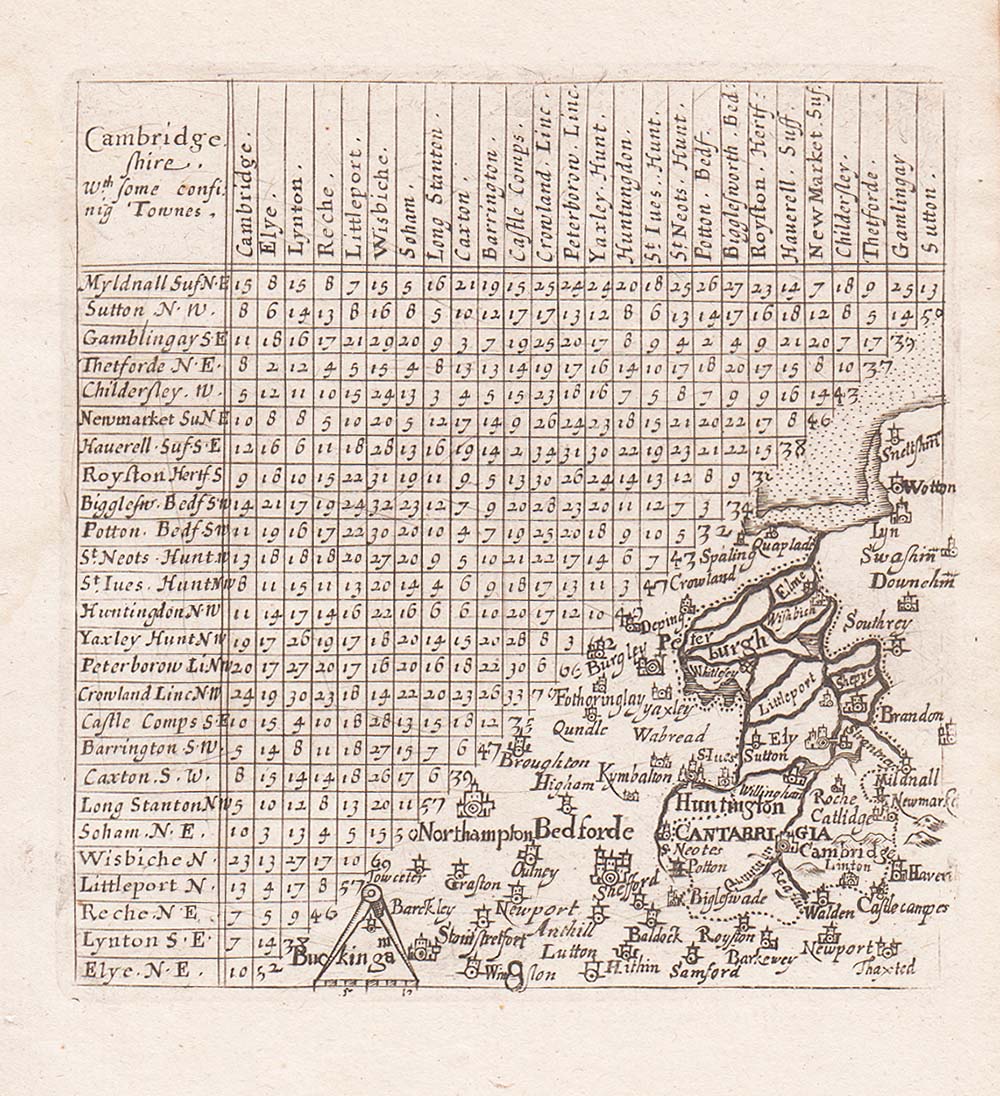 Cambridge
shire.
Wth some confi:
nig Townes.
Cambridge.
Elye.
Lynton.
Reche.
Littleport.
Wisbiche.
Soham.
Long Stanton.
Caxton.
Barrington.
Castle Comps.
Crowland Linc.
Peterborow. Linc.
Yaxley Hunt.
Huntungdon.
St Iues. Hunt.
St Neots Hunt.
Potton Bedf.
Bigglesworth Bed:
Royston. Hertf:
Hauerell. Suff.
New Market Suf.
Childersley.
Thetforde.
Gamlingay
Sutton.
Myldnall Suf N·E 15 8 15 8 7 15 5 16 21 19 15 25 24 24 20 18 25 26 27 23 14 7 18 9 25 13
Sutton N·W. 8 6 14 13 8 16 8 5 10 12 17 17 13 12 8 6 13 14 17 16 18 12 8 5 14 50
Gamblingay S·E 11 18 16 17 21 29 20 9 3 7 19 25 20 17 8 9 4 2 4 9 21 20 7 17 39
Thetforde N·E. 8 2 12 4 5 15 4 8 13 13 14 19 17 16 14 10 17 18 20 17 15 8 10 37
Childersley. W. 5 12 11 10 15 24 13 3 4 5 15 23 18 16 7 5 8 7 9 9 16 14 43
Newmarket Su N E 10 8 8 5 10 20 5 12 17 14 9 26 24 23 18 15 21 20 22 17 8 46
Hauerell·Suf·S·E 12 16 6 11 18 28 13 16 19 14 2 34 31 30 22 19 23 21 22 15 38
Royston Hertf S 9 18 10 15 22 31 19 11 9 5 13 30 26 24 14 13 12 8 9
Bigglesw. Bedf S w 14 21 17 19 24 32 23 12 7 9 20 28 23 20 11 12 7 3 34
Potton. Bedf·S w 11 19 16 17 22 30 20 10 4 7 19 25 20 18 9 10 5 32
St Neots. Hunt w 13 18 18 18 20 27 20 9 5 10 21 22 17 14 6 7 43
St Iues. Hunt N w 8 11 15 11 13 20 14 4 6 9 18 17 13 11 3 47
Huntingdon N W 11 14 17 14 16 22 16 6 6 10 20 17 12 10
Yaxley Hunt N w 19 17 26 19 17 18 20 14 15 20 28 8 3
Peterborow Li N w 20 17 27 20 17 16 20 16 18 22 30 6 66
Crowland Linc N W 24 19 30 23 18 14 22 20 23 26 33
Castle Comps S·E 10 15 4 10 18 28 13 15 18 12
Barrington S·W. 5 14 8 11 18 27 15 7 6 47
Caxton. S. W. 8 15 14 14 18 26 17 6 39
Long Stanton N w 5 10 12 8 13 20 11 57
Soham. N. E. 10 3 13 4 5 15 50
Wisbiche N· 23 13 27 17 10 69
Littleport N. 13 4 17 8 57
Reche·N·E 7 5 9 46
Lynton S·E· 7 14 38
Elye. N. E. 10 52
Sneltshm
Wotton
Lyn
Swashim
Downehm
Spaling
Quaplad
Crowland
Elme
Wisbich
Deping
Southrey
Peterburgh
Burgley
Whitlesey
Shepye
Littleport
Fotheringlay
Yaxley
Brandon
Qundle
Wabread
Ely
Sutton
Broughton
Higham
Kymbalton
S Iues
Mildnall
Willingham
Roche
Newmarke
Huntington
Catlidge
Northampton
Bedforde
CANTABRIGIA
S Neotes
Cambridg
Linton
Potton
Haveril
Towceter
Grafton
Oulney
Shefford
Bigleswade
Walden
Castle campes
Barekley
Newport
Anthill
Stonistretfort
Baldock
Royston
Newport
Buckingam
Lutton
Barkewey
Winslon
Hithin
Samford
Thaxted
5 10
9